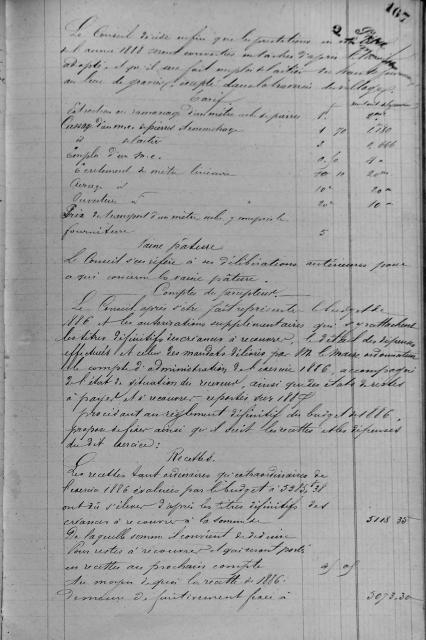 107
Le Conseil décide enfin que les prestations en
de l'année 1888 seront converties en tâches d'après le Tarif
adopté et qu'il sera fait emploi de laitier
au lieu de gravier, excepté dans la traverse du village.
Tarif
Extraction ou ramassage d'un mètre cube de pierres 1f
Cassage d'un m.c. de pierres 1 70 1,780
d° de laitier 2 2,666
Emploi d'un m.c.
Ecurement du mètre linéaire
Curage d°
Ouverture d°
Prix de transport d'un mètre cube y compris la
fourniture 5
Vaine pâture
Le Conseil s'en réfère à ses délibérations antérieures pour
ce qui concerne la vaine pâture.
Comptes du percepteur.
Le Conseil après s'être fait représenter le budget de
1886 et les autorisations supplémentaires qui s'y rattachent
les titres définitifs des créances à recouvrer, le détail des dépenses
effectuées et celui des mandats délivrés par M. le Maire, ordonnateur
le compte d'administration de l'exercice 1886, accompagné
de l'état de situation du receveur, ainsi que des états de restes
à payer et à recouvrer reportés sur 1887
procédant au règlement définitif du budget de 1886,
propose de fixer ainsi qu'il suit les recettes et les dépenses
du dit exercice:
Recettes.
Les recettes tant ordinaires qu'extraordinaires de
l'exercice 1886 évaluées par le budget à
ont dû s'élever d'après les titres définitifs des
créances à recouvrer à la somme de 5118 35
De laquelle somme il convient de déduire
Pour restes à recouvrer et qui seront portés
en recettes au prochain compte 45 05
Au moyen de quoi la recette de 1886
demeure définitivement fixée à 5073,30